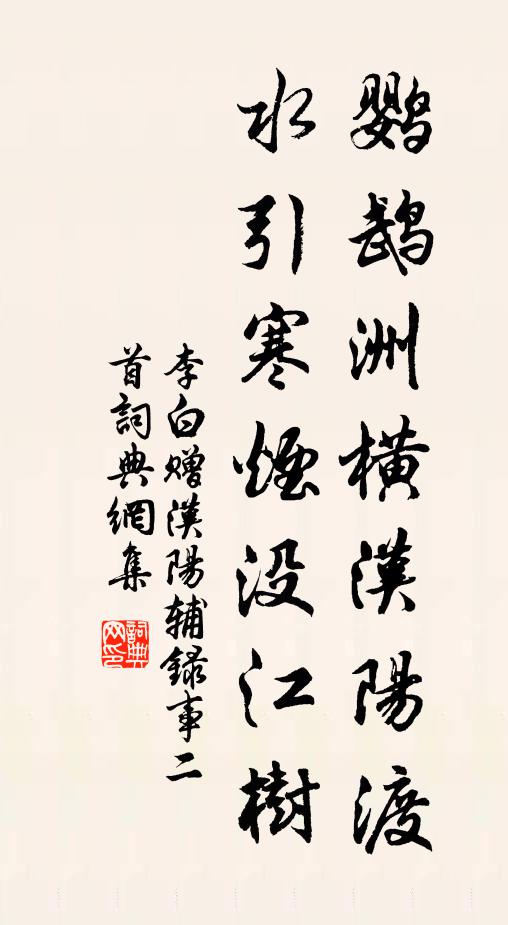 鸚鵡洲橫漢陽渡
水引寒煙没江樹
李白贈漢陽輔録事二
首詞典網集
詞典网印